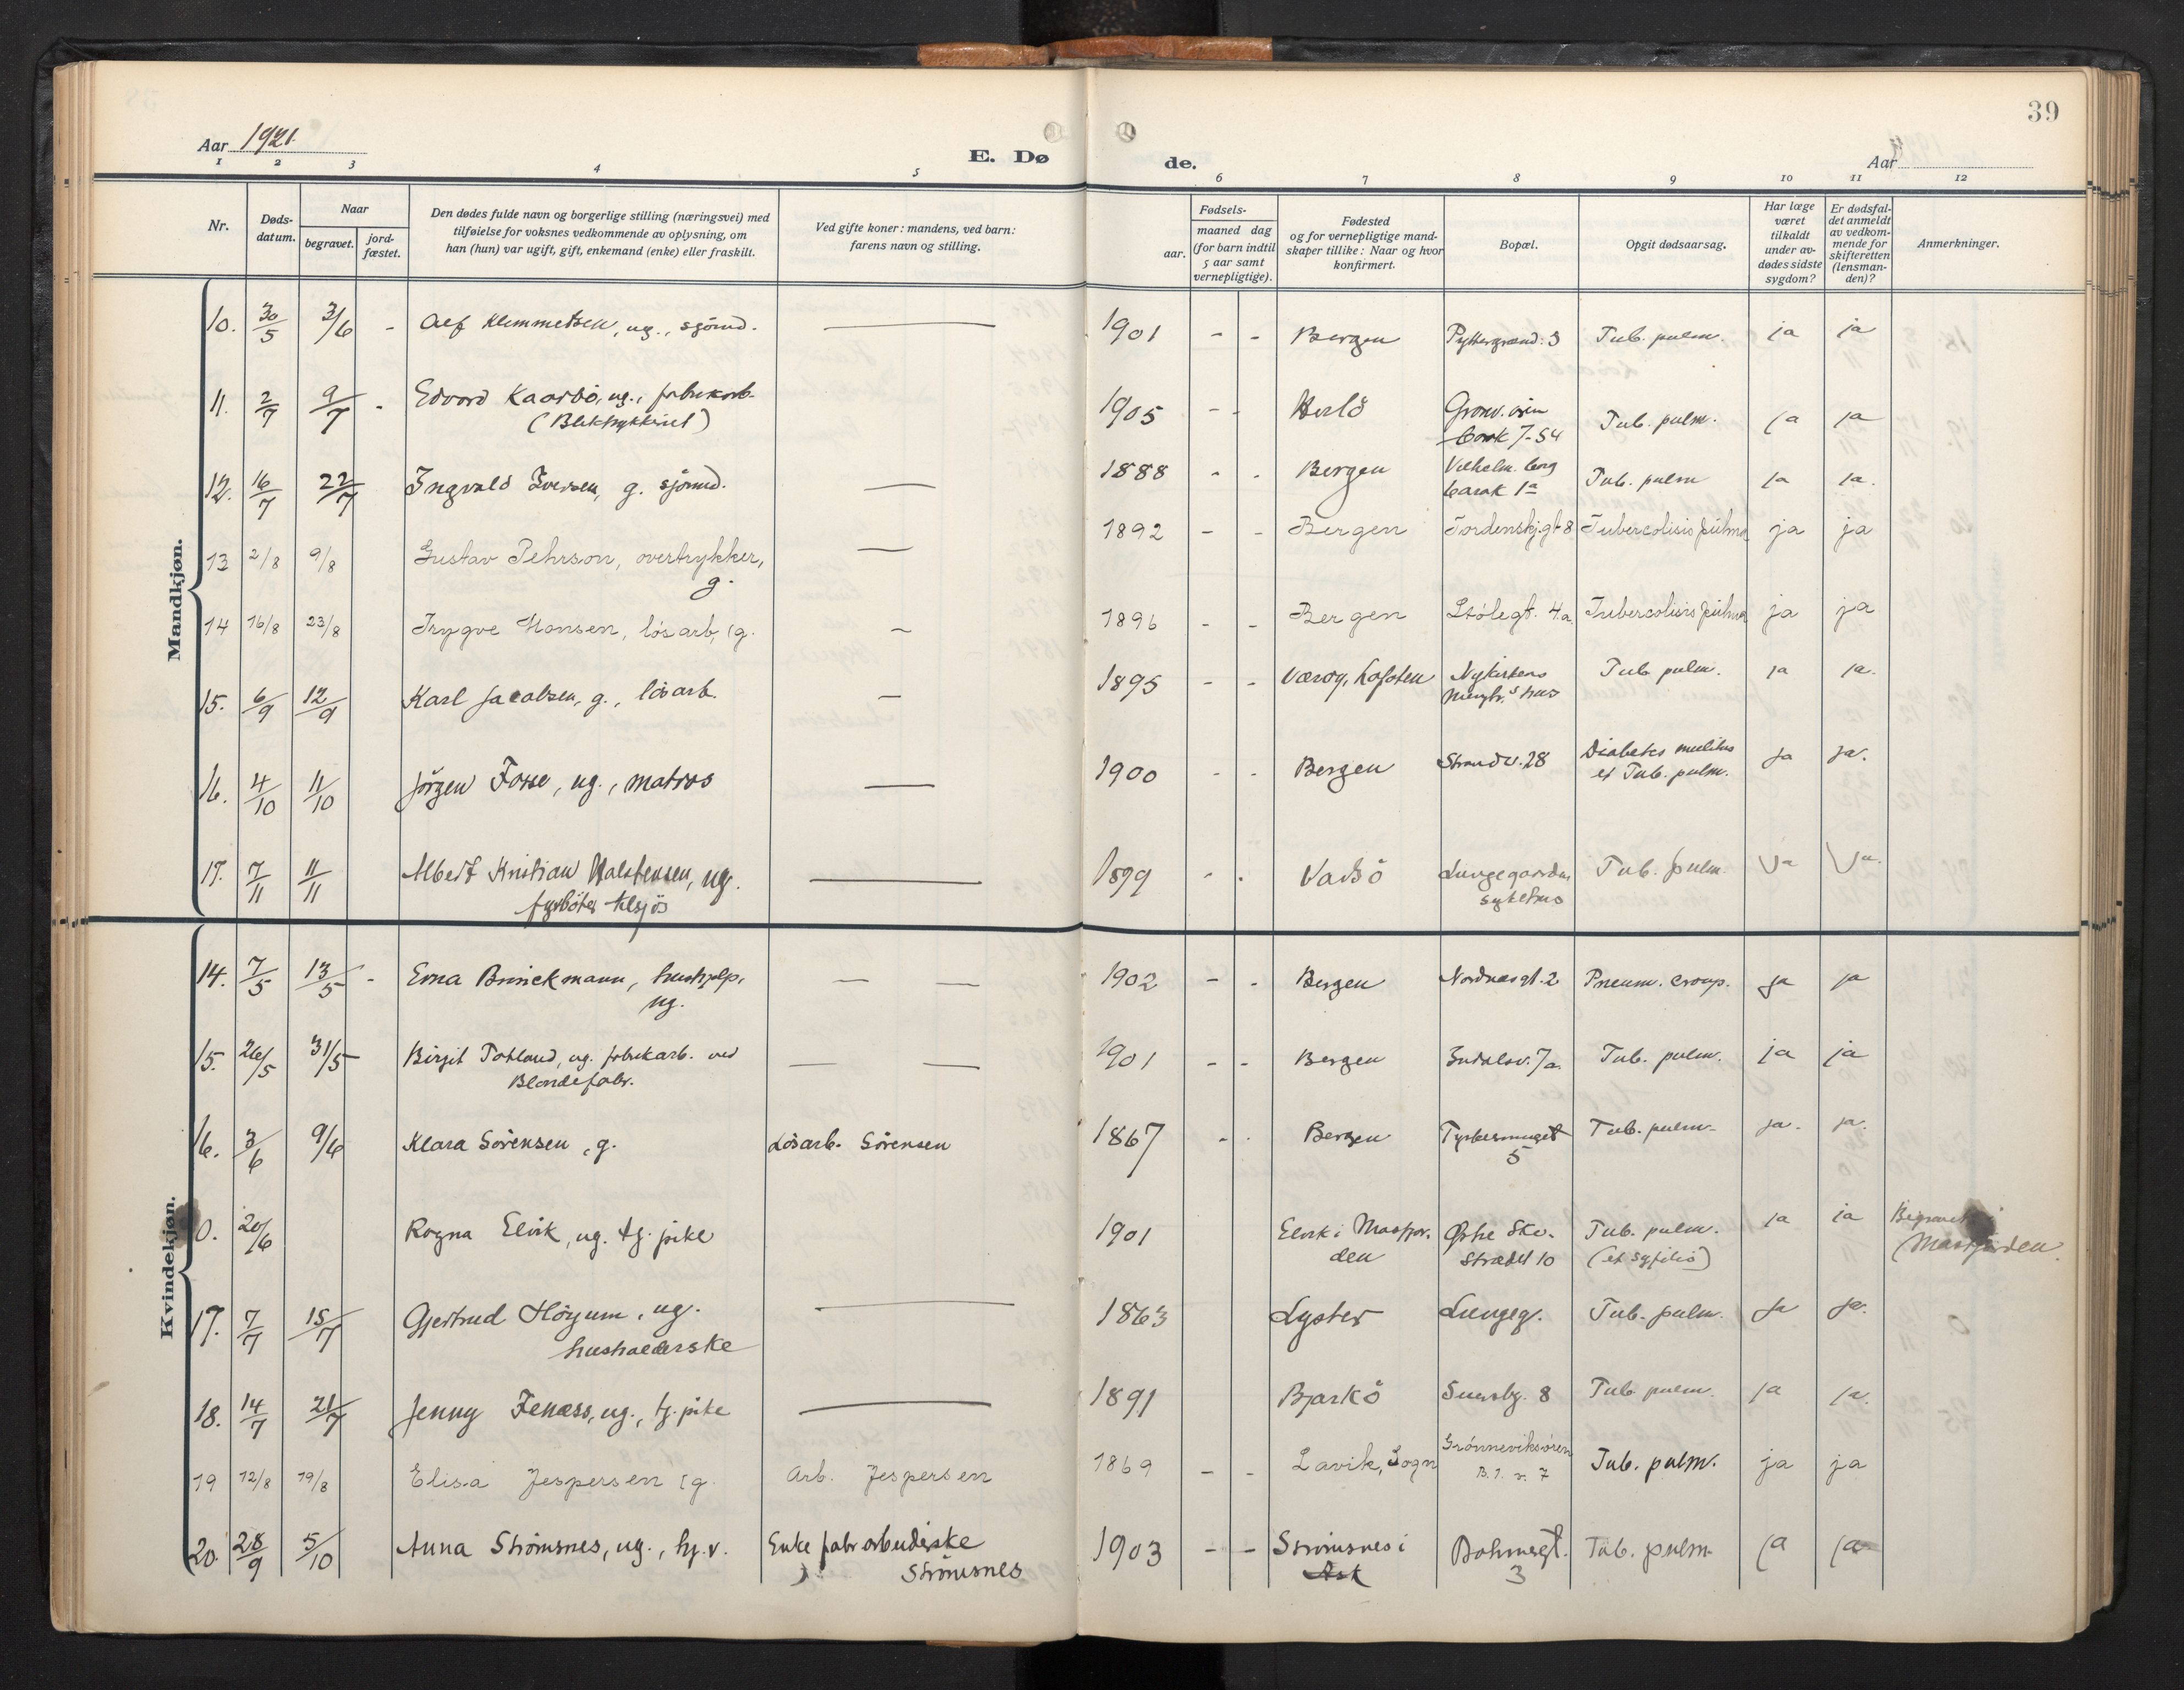 39
Aar 1921.
E. Døde.
Aar
1 2 3 4 5 6 7 8 9 10 11 12
Nr.
Dødsdatum.
Naar
begravet.
jordfæstet.
Den dødes fulde navn og borgerlige stilling (næringsvei) med
tilføielse for voksnes vedkommende av oplysning, om
han (hun) var ugift, gift, enkemand (enke) eller fraskilt.
Ved gifte koner: mandens, ved barn:
farens navn og stilling.
aar.
Fødsels-
maaned dag
(for barn indtil
5 aar samt
vernepligtige).
Fødested
og for vernepligtige mand-
skaper tillike: Naar og hvor
konfirmert.
Bopæl.
Opgit dødsaarsag.
Har læge
været
tilkaldt
under av-
dødes sidste
sygdom?
Er dødsfal-
det anmeldt
av vedkom-
mende for
skifteretten
(lensman-
den)?
Anmerkninger.
Mandkjøn.
10. 30/5 3/6 - Alf Klemmetsen, ug., sjömd. — 1901 - - Bergen Pyttergrænd. 3 Tub. pulm. ja ja
11. 2/7 9/7 - Edvard Kaarbö, ug., fabrikarb. 1905 - - Herlö Grønv. ören Tub. pulm. ja ja
(Bliktrykkeriet) barak 7-54
12. 16/7 22/7 Ingvald Iversen, g. sjömd. — 1888 - - Bergen Vilhelm. berg Tub. pulm ja ja.
barak 1a
13 2/8 9/8 Gustav Pehrson, overtrykker, — 1892 - - Bergen Tordenskj.gt 8 Tubercolisis pulma ja ja
g.
14 16/8 23/8 Trygve Hansen, lös arb, g. — 1896 - - Bergen Stölegt. 4.a. Tubercolisis pulma ja ja
15. 6/9 12/9 Karl Jacobsen, g., lösarb. — 1895 - - Værøy, Lofoten Nykirkens Tub. pulm. ja ja.
Menighs hus
16. 4/10 11/10 Jörgen Fosse, ug., matros — 1900 - - Bergen Strandv. 28 Diabetes mellitus ja ja.
et Tub. pulm.
17. 7/11 11/11 Albert Kristian Halstensen, ug. — 1899 - . Vadsö Lungegaardens Tub. pulm. Ja Ja.
fyrböter tilsjös sykehus
Kvindekjøn.
14. 7/5 13/5 - Erna Brinckmann, hushjelp, — — 1902 - - Bergen Nordnesgt. 2 Pneum. croup. ja ja
ug.
15. 26/5 31/5 Birgit Totland, ug. fabrikarb. ved — — 1901 - - Bergen Indalsv. 7a. Tub. pulm. ja ja
Blondefabr.
16. 3/6 9/6 Klara Sörensen, g. Lösarb. Sörensen 1867 - . Bergen Tub. pulm. ja. ja.
5
0. 20/6 Ragna Elvik, ug. tj. pike 1901 Elvik i Masfjor- Østre Skv. Tub. pulm. ja ja Begravet i
den strædet 10 (et syfilis) Masfjorden.
17. 7/7 15/7 Gjertrud Höyum, ug. — 1863 Lyster Lungeg. Tub. pulm. ja ja.
husholderske
18. 14/7 21/7 Jenny Fenæss, ug., tj. pike — 1891 Bjarkö 8 Tub. pulm. ja ja.
19 12/8 19/8 Elisa Jespersen g. Arb. Jespersen 1869 - - Lavik, Sogn Grönneviksören Tub. pulm. ja ja
B. 1. v. 7
20. 28/9 5/10 Anna Strömsnes, ug., hj.v. Enke fabr.arbeiderske 1903 - - Strömsnes i Bøhmergt. Tub. pulm. ja ja
Strömsnes Ask 3